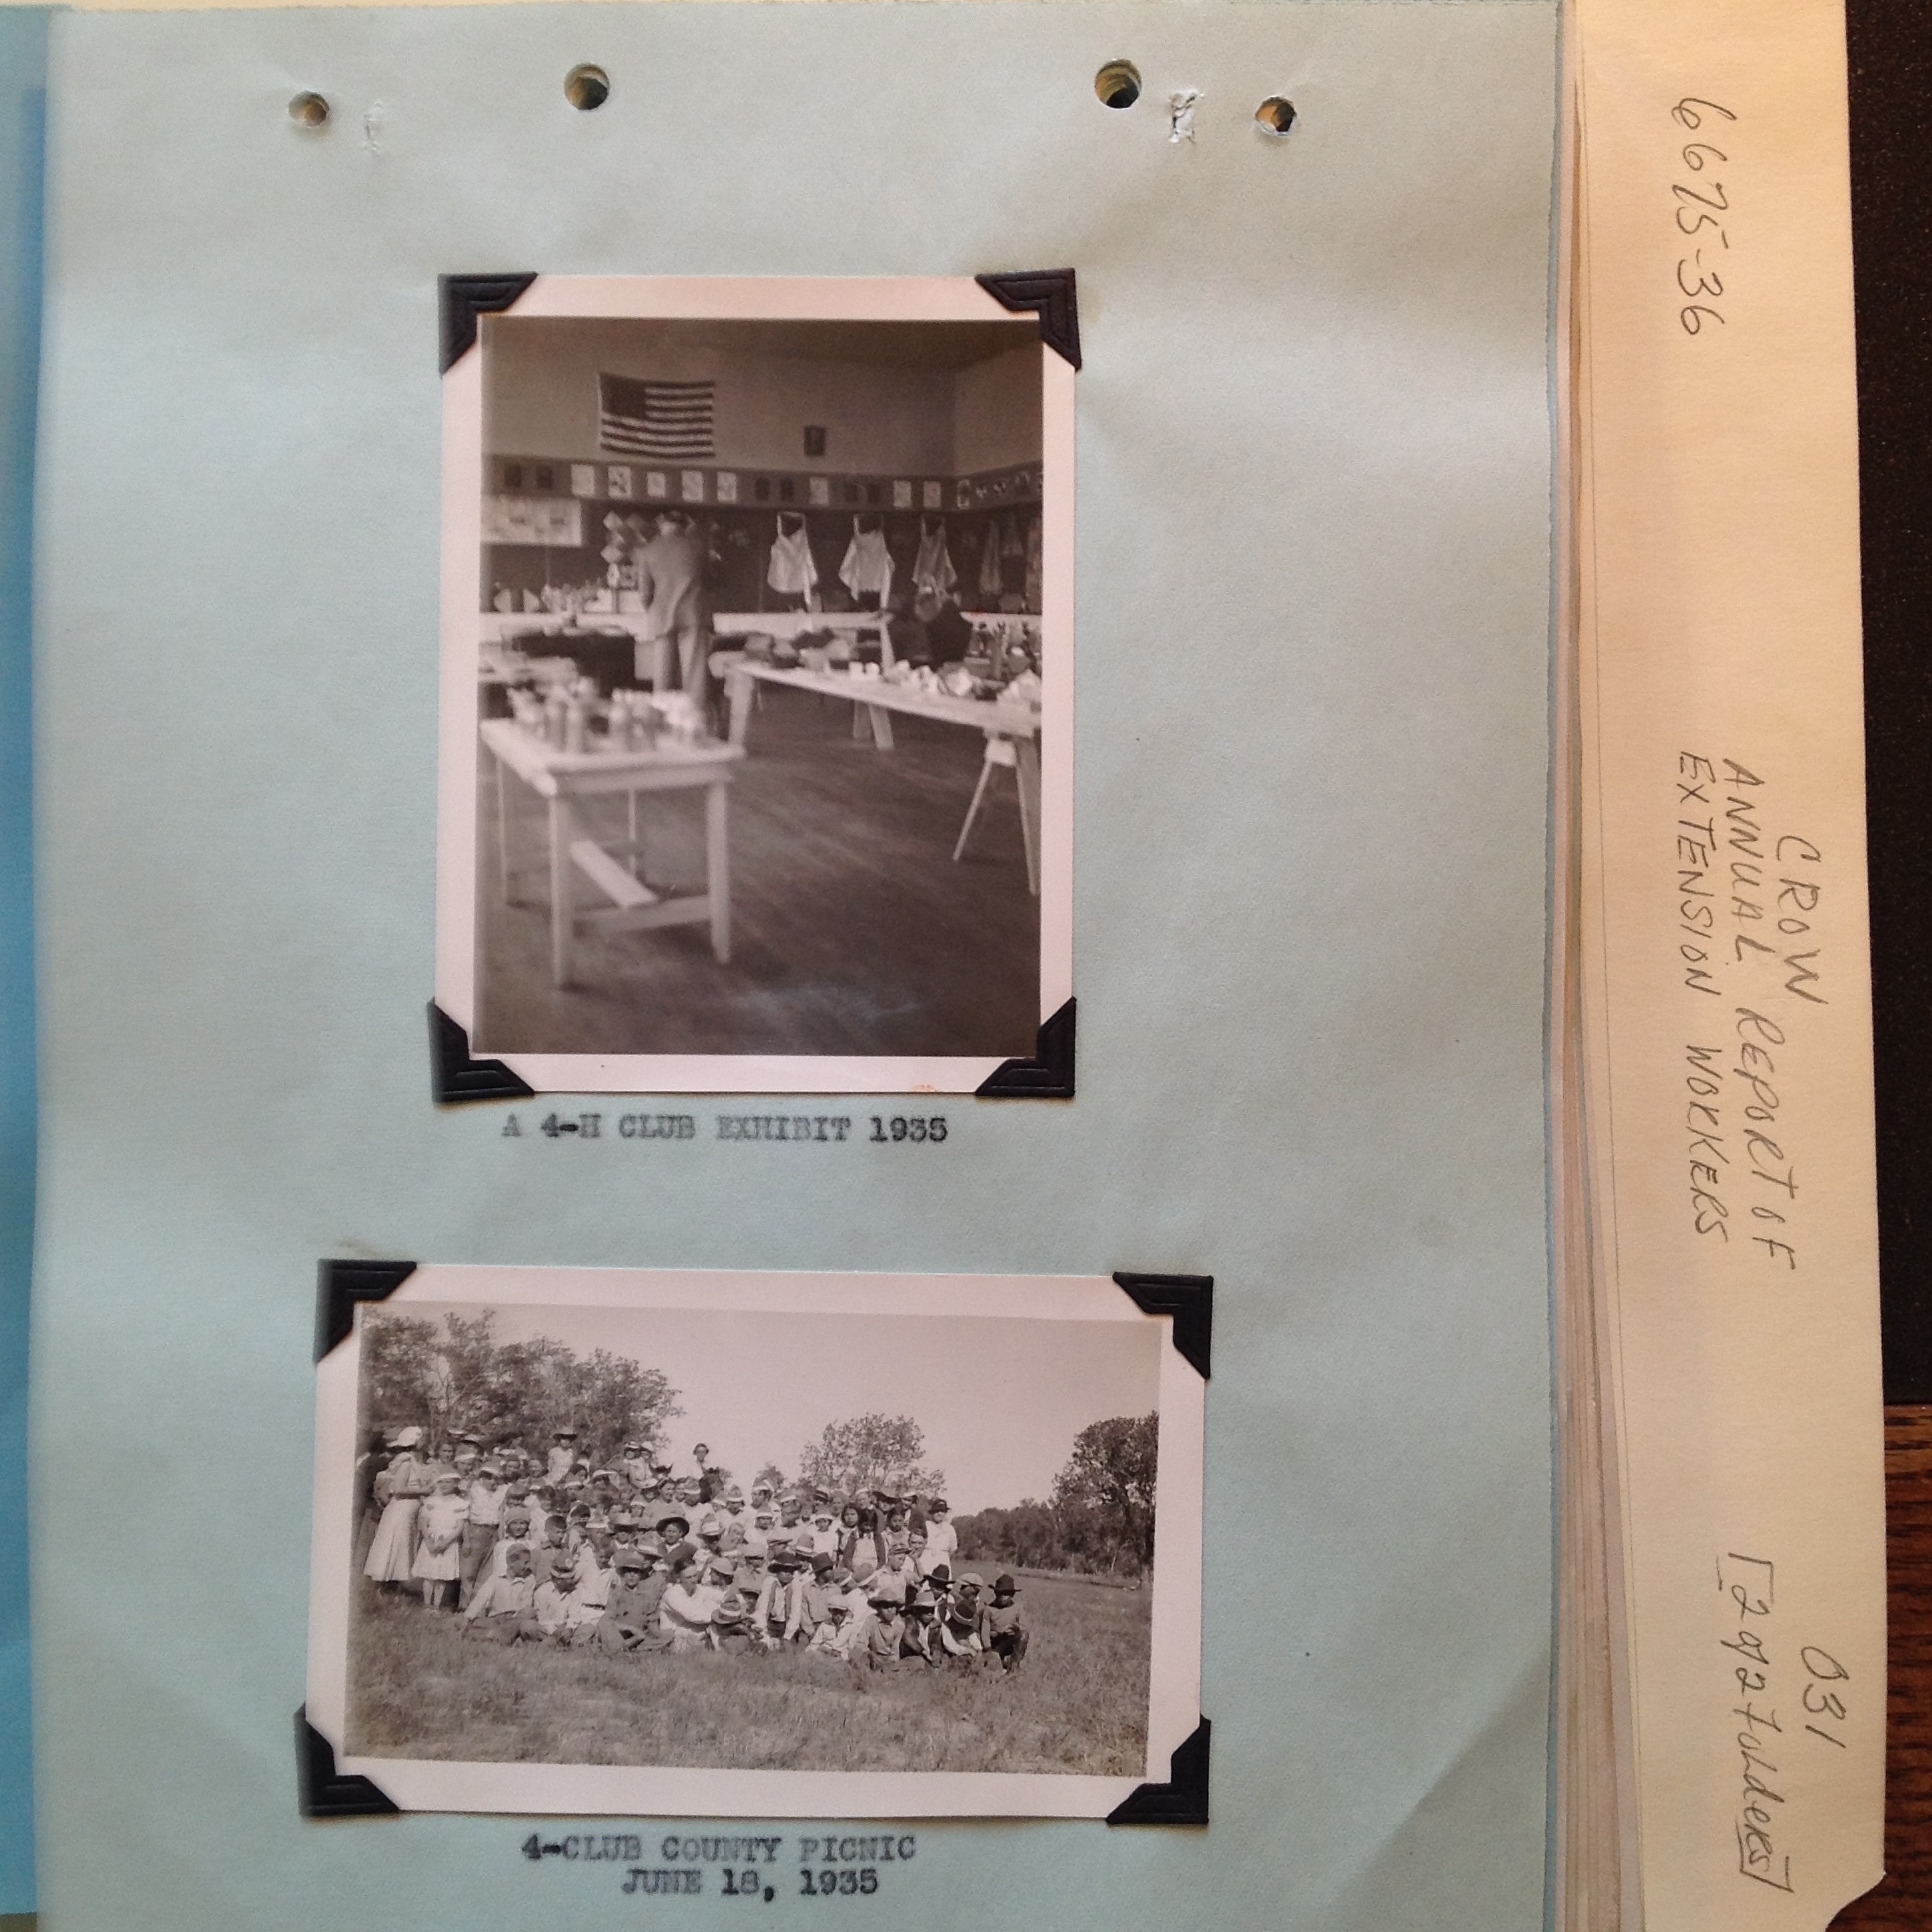 A 4-H CLUB EXHIBIT 1935
4-CLUB COUNTY PICNIC
JUNE 18, 1935
6675-36
CROW
ANNUAL REPORT OF
EXTENSION WORKERS
031
[2 of 2 folders]